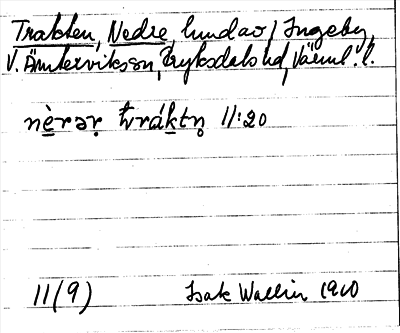 Trakten, Nedre, lund av / Ingeby,
V. Ämterviks sn, Fryksdals hd, Värml. l.
nèrər tráktn 11:20
11(9) Isak Wallin 1910